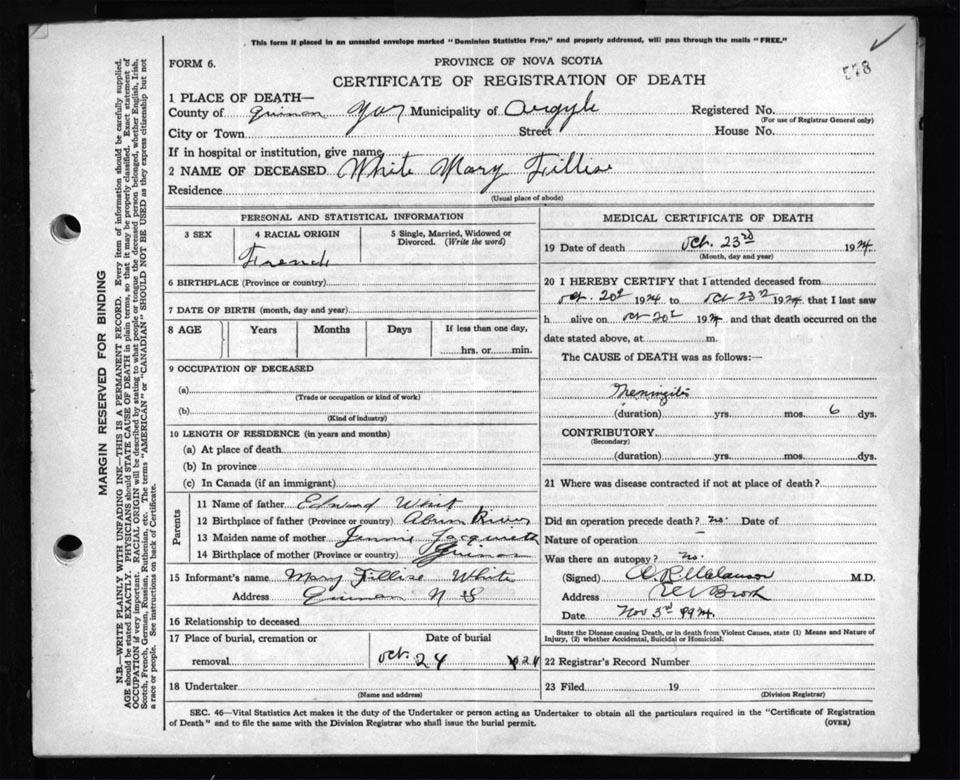 This form if placed in an unsealed envelope marked "Dominion Statistics Free," and properly addressed, will pass through the mails "FREE."
578
FORM 6.
PROVINCE OF NOVA SCOTIA
CERTIFICATE OF REGISTRATION OF DEATH
1 PLACE OF DEATH—
County of Quinan Yar Municipality of Argyle Registered No.
(For use of Registrar General only)
City or Town Street House No.
If in hospital or institution, give name
2 NAME OF DECEASED White Mary Fillise
Residence
(Usual place of abode)
PERSONAL AND STATISTICAL INFORMATION
3 SEX
4 RACIAL ORIGIN
French
5 Single, Married, Widowed or Divorced. (Write the word)
6 BIRTHPLACE (Province or country)
7 DATE OF BIRTH (month, day and year)
8 AGE Years Months Days If less than one day,
hrs. or min.
9 OCCUPATION OF DECEASED
(a)
(Trade or occupation or kind of work)
(b)
(Kind of industry)
10 LENGTH OF RESIDENCE (in years and months)
(a) At place of death
(b) In province
(c) In Canada (if an immigrant)
Parents
11 Name of father Edward Whit
12 Birthplace of father (Province or country) River
13 Maiden name of mother Jennie
14 Birthplace of mother (Province or country) Quinan
15 Informant's name Mary Fillise White
Address Quinan N S
16 Relationship to deceased
17 Place of burial, cremation or removal
Date of burial
Oct. 24 1924
18 Undertaker
(Name and address)
MEDICAL CERTIFICATE OF DEATH
19 Date of death Oct. 23rd 1924
(Month, day and year)
20 I HEREBY CERTIFY that I attended deceased from
Oct. 20t 1924 to Oct 23rd 1924 that I last saw
h alive on Oct 20t 1924 and that death occurred on the
date stated above, at m.
The CAUSE of DEATH was as follows:—
Meningitis
(duration) yrs. mos. 6 dys.
CONTRIBUTORY
(Secondary)
(duration) yrs. mos. dys.
21 Where was disease contracted if not at place of death?
Did an operation precede death? No. Date of
Nature of operation
Was there an autopsy? No.
(Signed) M.D.
Address
Date Nov 3rd 1924
State the Disease causing Death, or in death from Violent Causes, state (1) Means and Nature of
Injury, (2) whether Accidental, Suicidal or Homicidal.
22 Registrar's Record Number
23 Filed 19
(Division Registrar)
SEC. 46—Vital Statistics Act makes it the duty of the Undertaker or person acting as Undertaker to obtain all the particulars required in the "Certificate of Registration
of Death" and to file the same with the Division Registrar who shall issue the burial permit.
(OVER)
MARGIN RESERVED FOR BINDING
N.B.—WRITE PLAINLY WITH UNFADING INK—THIS IS A PERMANENT RECORD. Every item of information should be carefully supplied.
AGE should be stated EXACTLY. PHYSICIANS should STATE CAUSE OF DEATH in plain terms, so that it may be properly classified. Exact statement of
OCCUPATION if very important. RACIAL ORIGIN will be described by stating to what people or tongue the deceased person belonged, whether English, Irish,
Scotch, French, German, Russian, Ruthenian, etc. The terms "AMERICAN" or "CANADIAN" SHOULD NOT BE USED as they express citizenship but not
a race or people. See instructions on back of Certificate.